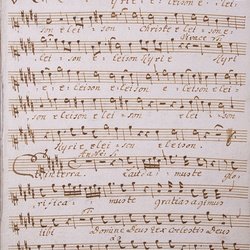 Kyrie e leison e lei
son e lei son Christe e lei son e
lei son e e leison Kyrie Kyri
e e e leison e e leison e lei
son e leison e leison e lei son
Kyrie e leison e lei son
Et in terra Laudamus te glo
rifica mus te gratias agimus
tibi Domine Deus Rex coelestis Deus